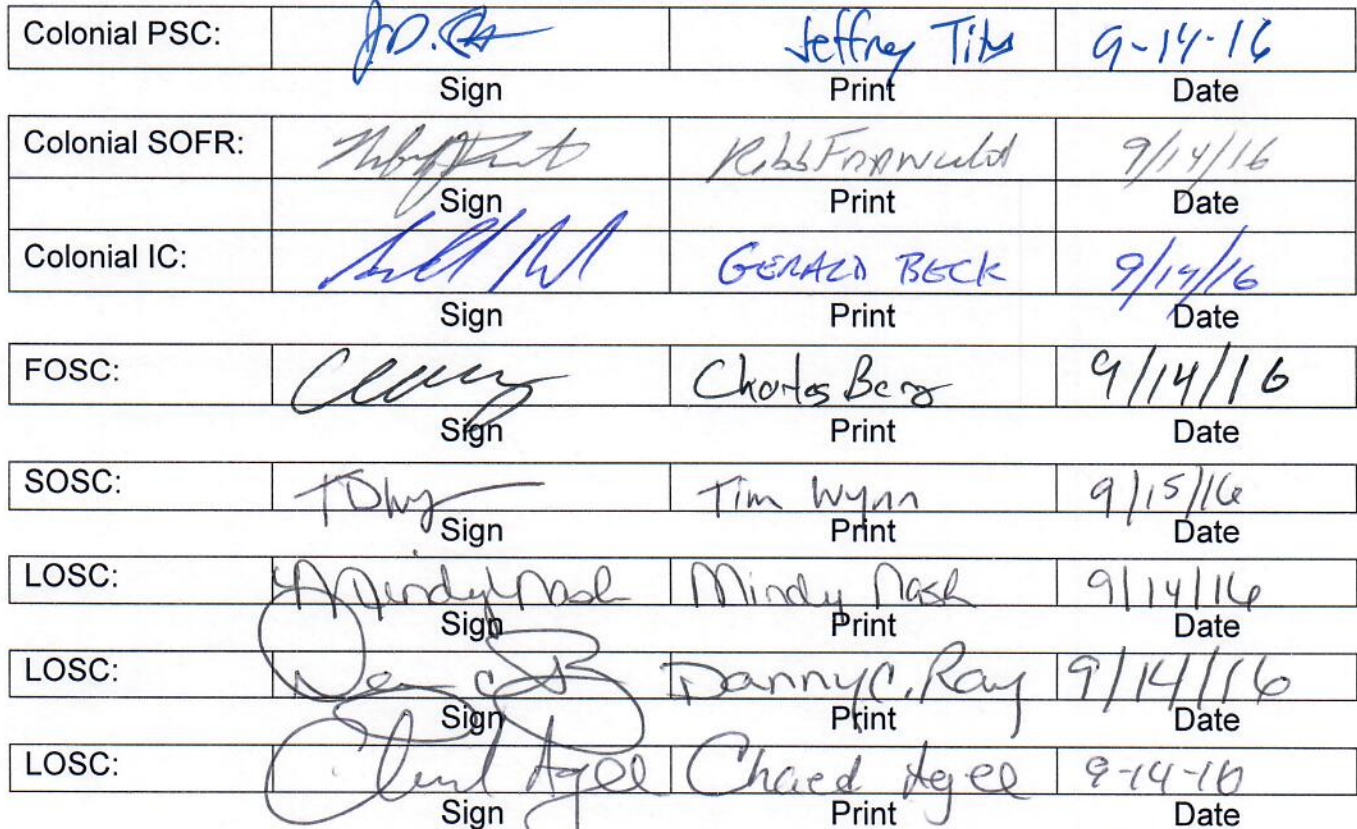 Colonial PSC: Jeffrey Titus 9-14-16
Sign Print Date
Colonial SOFR: 9/14/16
Sign Print Date
Colonial IC: GERALD BECK 9/14/16
Sign Print Date
FOSC: Charles Berg 9/14/16
Sign Print Date
SOSC: Tim Wynn 9/15/16
Sign Print Date
LOSC: Mindy Nash Mindy Nash 9/14/16
Sign Print Date
LOSC: Danny C. Ray 9/14/16
Sign Print Date
LOSC: Agee Agee 9-14-16
Sign Print Date